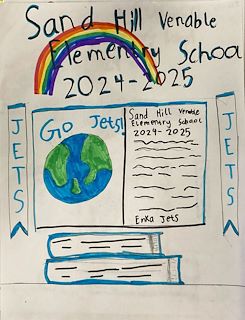 Sand Hill Venable
Elementry School
2024-2025
JETS
Go Jets!
Sand Hill Venable
Elementry School
2024-2025
Erika Jets
JETS